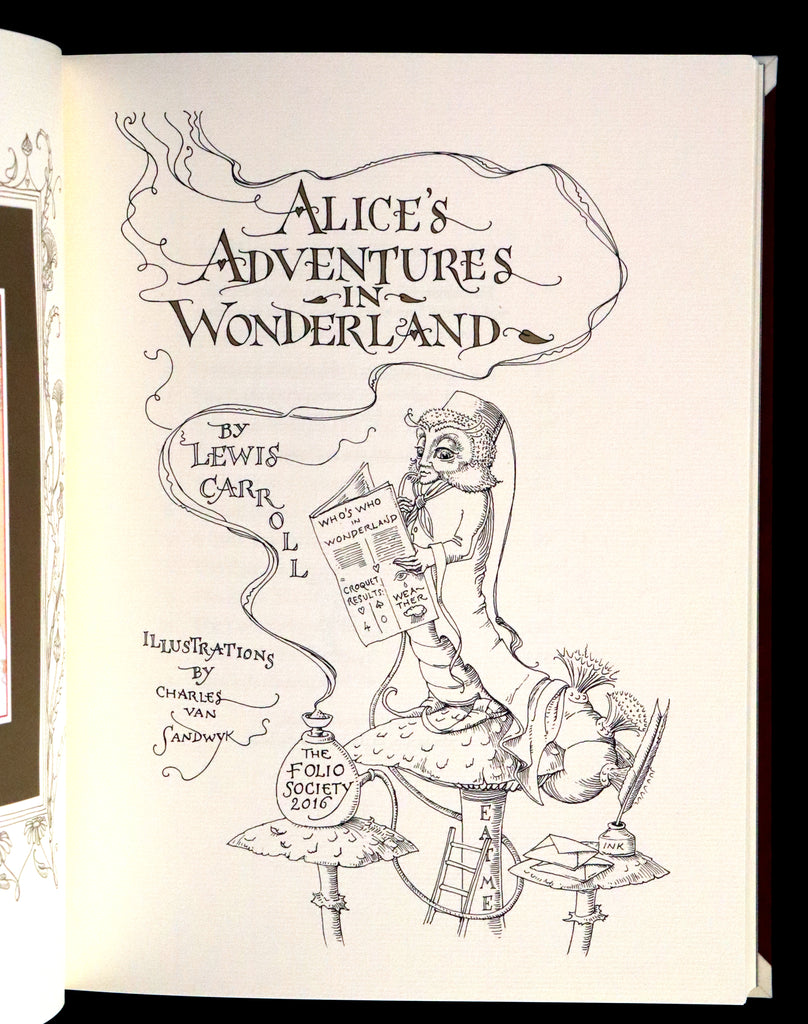 ALICE'S
ADVENTURES
IN
WONDERLAND
BY
LEWIS
CARROLL
WHO'S WHO
IN
WONDERLAND
CROQUET
RESULTS:
4 0
WEA-
THER
ILLUSTRATIONS
BY
CHARLES
VAN
SANDWYK
THE
FOLIO
SOCIETY
2016
EAT ME
INK